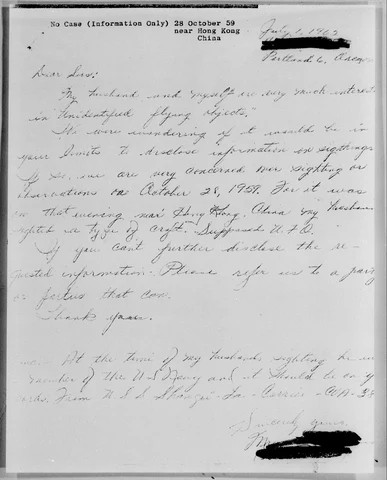 No Case (Information Only) 28 October 59
near Hong Kong
China
July 1, 196
Portland 6,
Dear Sir:
My husband and myself are very much interest
in "Unidentified flying objects."
We were wondering if it would be in
your limits to disclose information on sightings
If so, we are very concerned over sighting or
observations on October 28, 1959. For it was
on that evening near Hong Kong, China my husband
sighted a type of craft. Supposed U.F.O.
If you can't further disclose the re-
quested information. Please refer us to a party
or parties that can.
Thank you.
At the time of my husbands sighting he
member of the U S Navy and it should be on
From U.S.S. Shangri-La-Carrier-CVA-38
Sincerely yours,